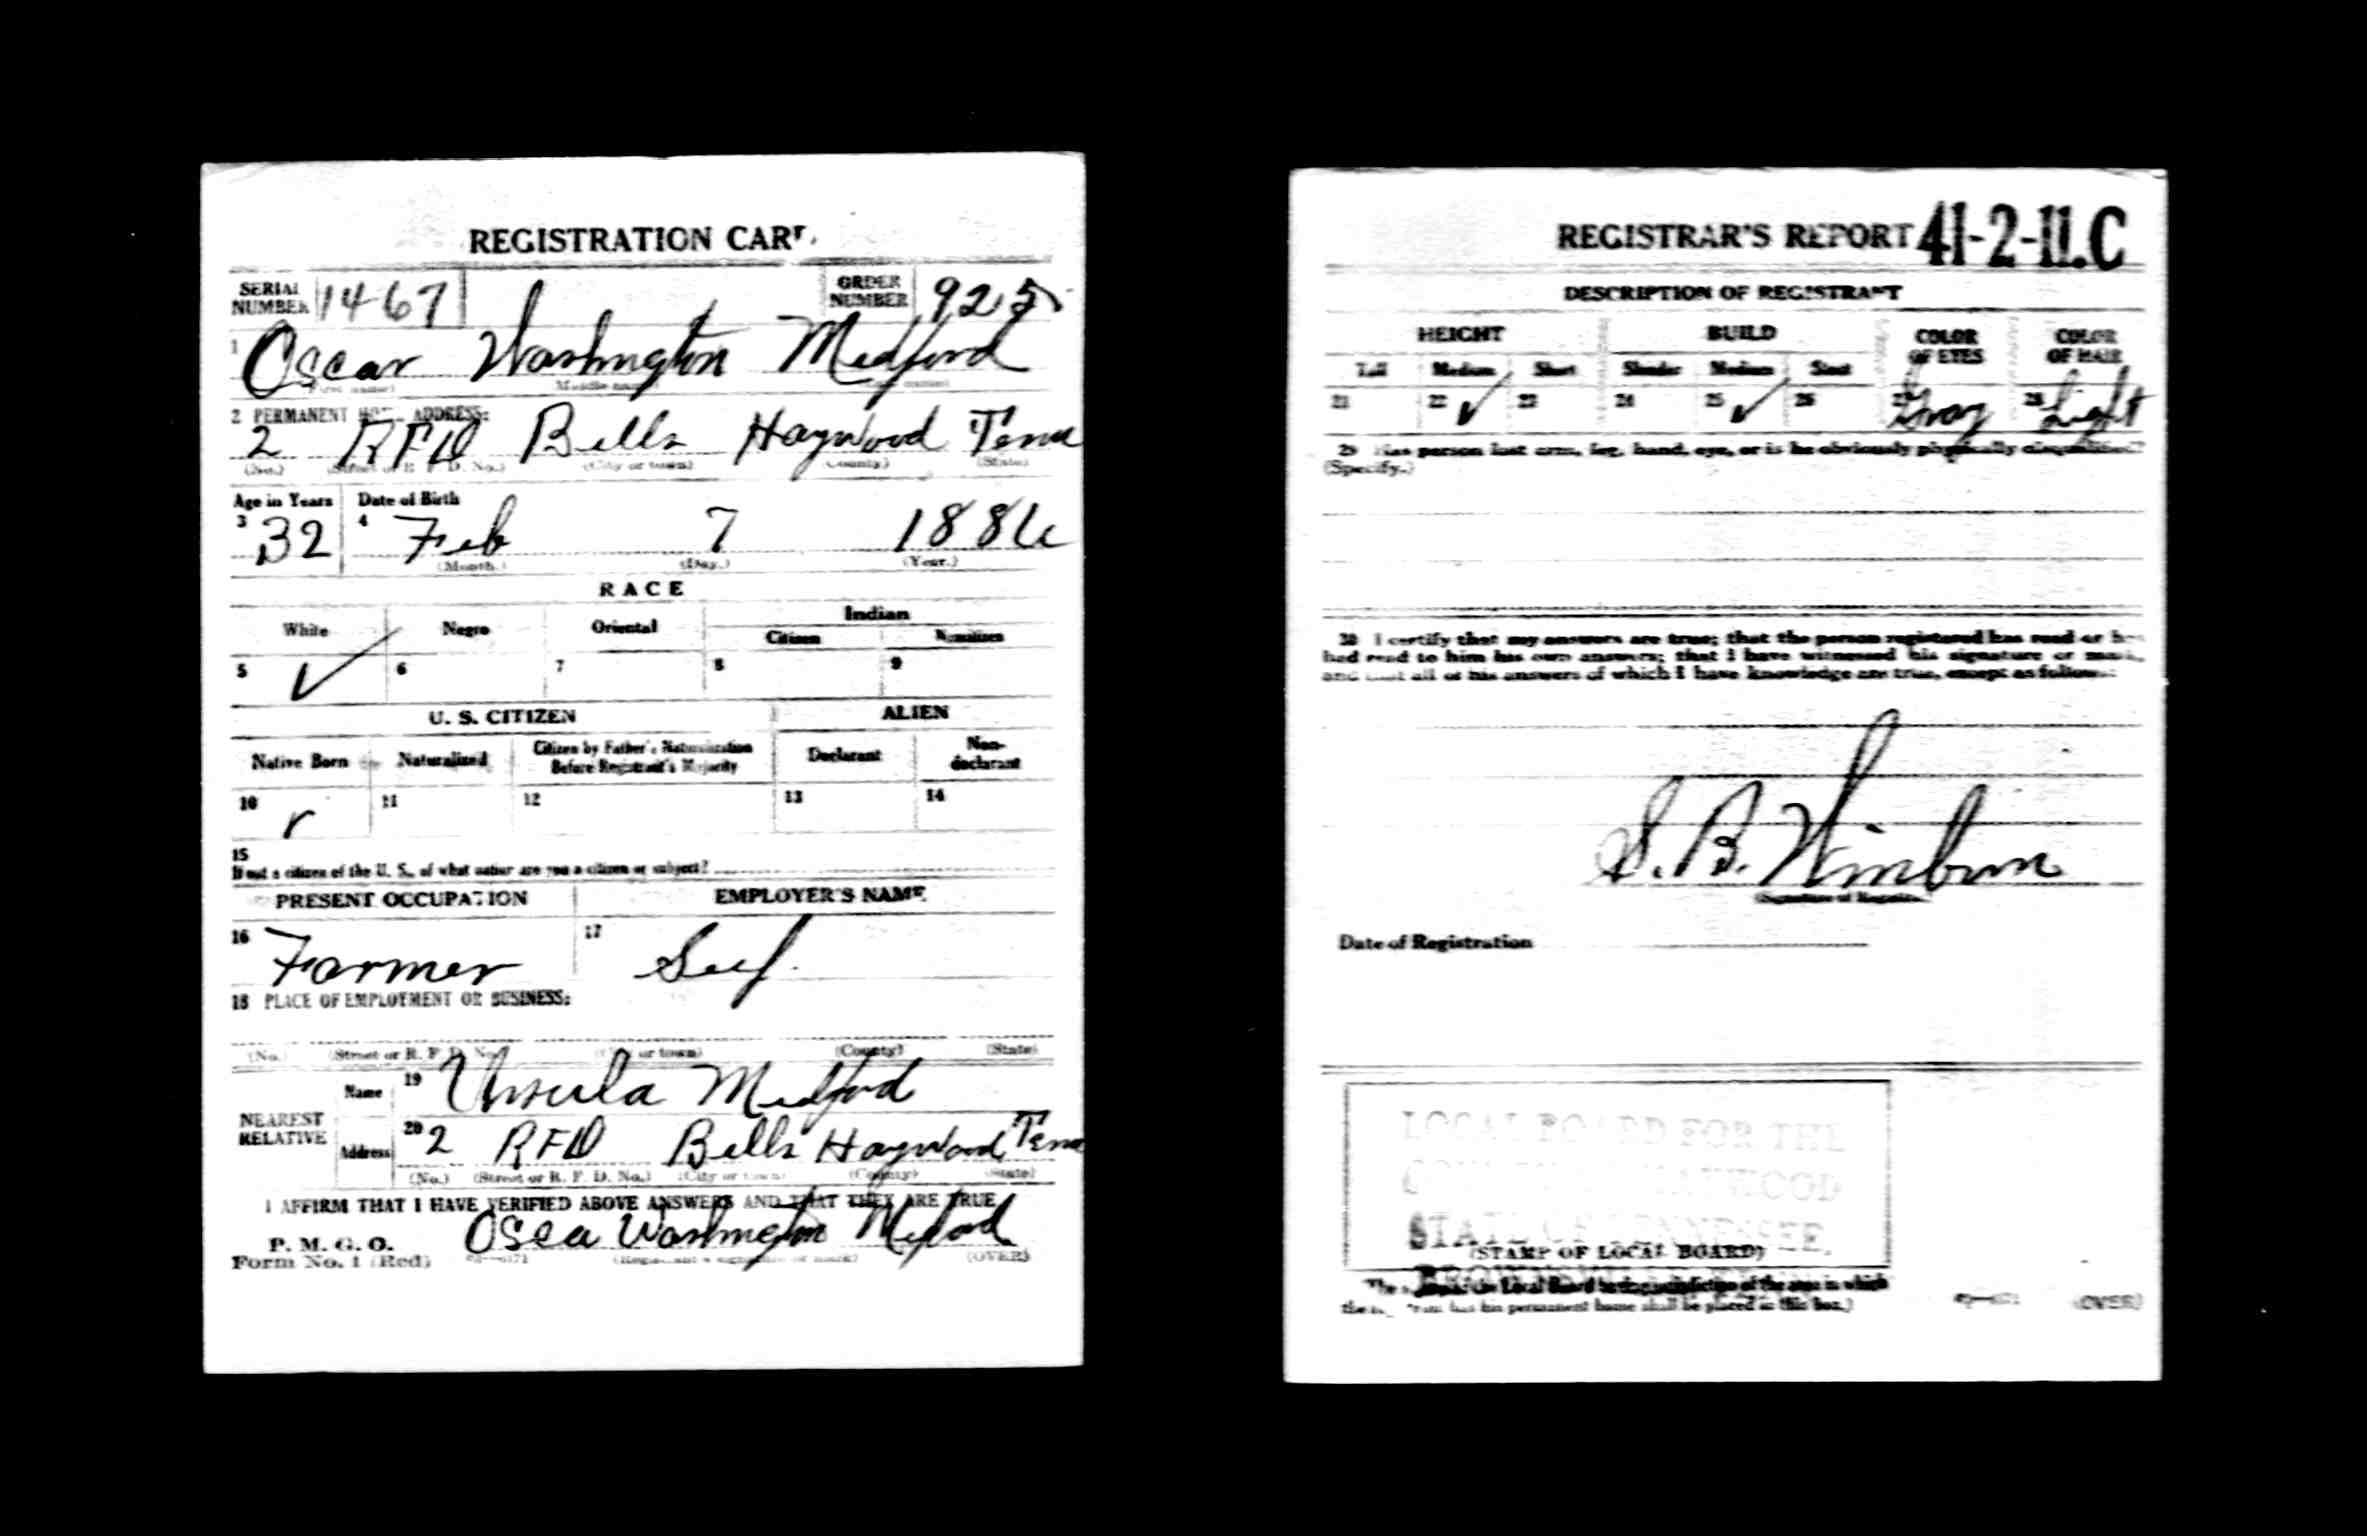 REGISTRATION CARD
SERIAL NUMBER 1467 ORDER NUMBER 925
1 Oscar Washington Medford
(First name) Middle name (Last name)
2 PERMANENT HOME ADDRESS:
2 RFD Bells Haywood Tenn
(No.) (Street or R. F. D. No.) (City or town) (County) (State)
Age in Years Date of Birth
3 32 4 Feb 7 1886
(Month.) (Day.) (Year.)
RACE
White Negro Oriental Indian
Citizen Noncitizen
5 ✓ 6 7 8 9
U. S. CITIZEN ALIEN
Native Born Naturalized Citizen by Father's Naturalization Before Registrant's Majority Declarant Non-declarant
10 ✓ 11 12 13 14
15
If not a citizen of the U. S., of what nation are you a citizen or subject?
PRESENT OCCUPATION EMPLOYER'S NAME
16 Farmer 17 Self
18 PLACE OF EMPLOYMENT OR BUSINESS:
(No.) (Street or R. F. D. No.) (City or town) (County) (State)
NEAREST RELATIVE
Name 19 Ursula Medford
Address 20 2 RFD Bells Haywood Tenn
(No.) (Street or R. F. D. No.) (City or town) (County) (State)
I AFFIRM THAT I HAVE VERIFIED ABOVE ANSWERS AND THAT THEY ARE TRUE
P. M. G. O.
Form No. 1 (Red) Osca Washington Medford
(Registrant's signature or mark) (OVER)
REGISTRAR'S REPORT 41-2-11.C
DESCRIPTION OF REGISTRANT
HEIGHT BUILD COLOR OF EYES COLOR OF HAIR
Tall Medium Short Slender Medium Stout
21 22 ✓ 23 24 25 ✓ 26 27 Gray 28 Light
29 Has person lost arm, leg, hand, eye, or is he obviously physically disqualified?
(Specify.)
30 I certify that my answers are true; that the person registered has read or has
had read to him his own answers; that I have witnessed his signature or mark,
and that all of his answers of which I have knowledge are true, except as follows:
S. B. Winburn
(Signature of Registrar)
Date of Registration
LOCAL BOARD FOR THE
COUNTY OF HAYWOOD
STATE OF TENNESSEE,
(STAMP OF LOCAL BOARD)
(The stamp of the Local Board having jurisdiction of the area in which
the registrant has his permanent home shall be placed in this box.)
(OVER)